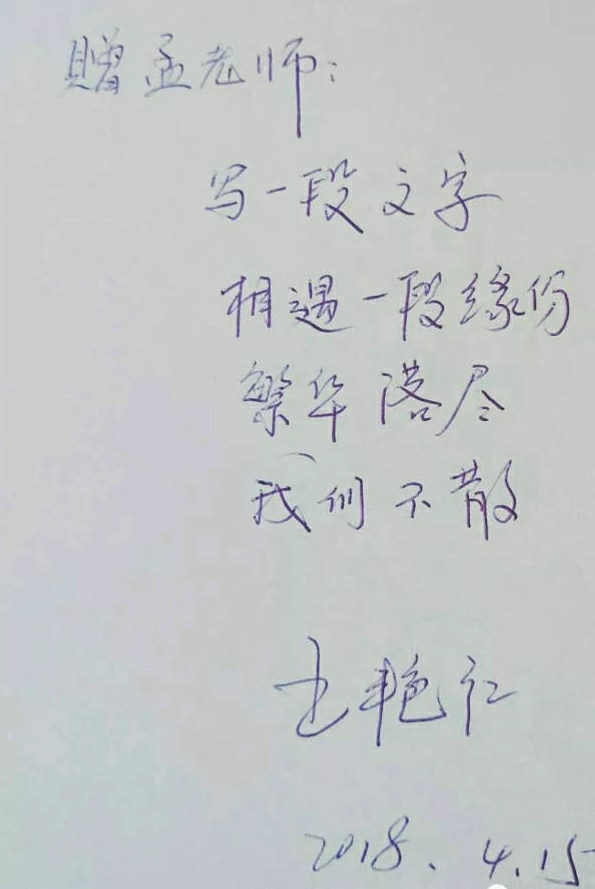 赠孟老师：
写一段文字
相遇一段缘份
繁华落尽
我们不散
王艳红
2018.4.15